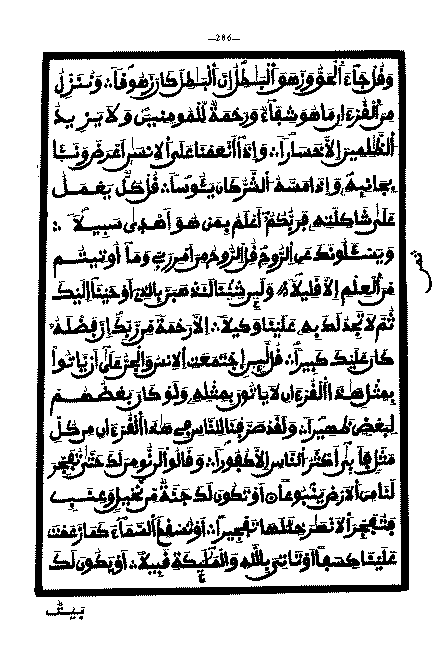 —286—
وقل جاء الحق وزهق البطل إن البطل كان زهوقا ؞ وننزل
من القرءان ما هو شفاء ورحمة للمومنين ولا يزيد
الظلمين إلا خسارا ؞ وإذا أنعمنا على الانسن أعرض ونئا
بجانبه وإذا مسه الشر كان يئوسا ؞ قل كل يعمل
على شاكلته فربكم أعلم بمن هو أهدى سبيلا ؞
ويسئلونك عن الروح قل الروح من أمر ربي وما أوتيتم
من العلم إلا قليلا ؞ ولئن شئنا لنذهبن بالذي أوحينا إليك
ثم لا تجد لك به علينا وكيلا ؞ إلا رحمة من ربك إن فضله
كان عليك كبيرا ؞ قل لئن اجتمعت الانس والجن على أن ياتوا
بمثل هذا القرءان لا ياتون بمثله ولو كان بعضهم
لبعض ظهيرا ؞ ولقد صرفنا للناس في هذا القرءان من كل
مثل فأبى أكثر الناس إلا كفورا ؞ وقالوا لن نومن لك حتى تفجر
لنا من الارض ينبوعا ؞ أو تكون لك جنة من نخيل وعنب
فتفجر الانهر خللها تفجيرا ؞ أو تسقط السماء كما زعمت
علينا كسفا أو تاتي بالله والمليكة قبيلا ؞ أو يكون لك
ثمن
بيت